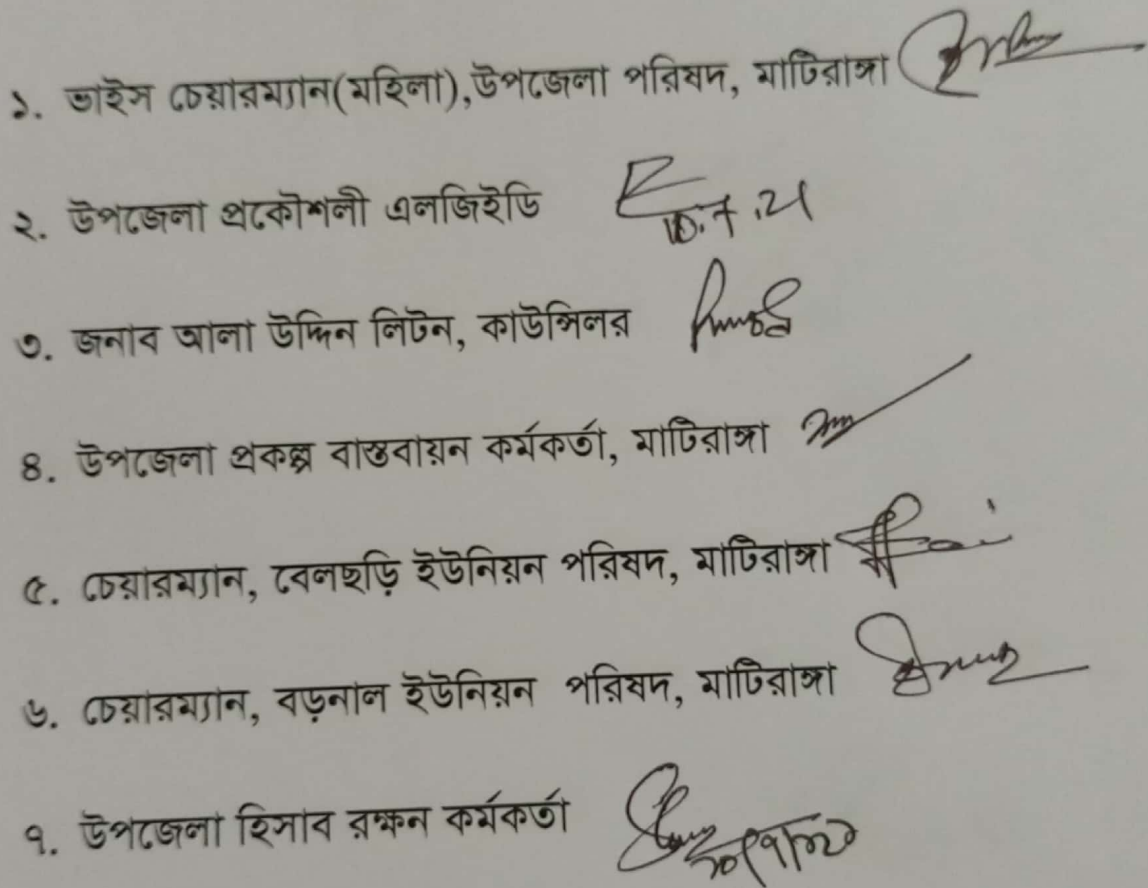 ১. ভাইস চেয়ারম্যান(মহিলা),উপজেলা পরিষদ, মাটিরাঙ্গা
২. উপজেলা প্রকৌশলী এলজিইডি
৩. জনাব আলা উদ্দিন লিটন, কাউন্সিলর
৪. উপজেলা প্রকল্প বাস্তবায়ন কর্মকর্তা, মাটিরাঙ্গা
৫. চেয়ারম্যান, বেলছড়ি ইউনিয়ন পরিষদ, মাটিরাঙ্গা
৬. চেয়ারম্যান, বড়নাল ইউনিয়ন পরিষদ, মাটিরাঙ্গা
৭. উপজেলা হিসাব রক্ষন কর্মকর্তা